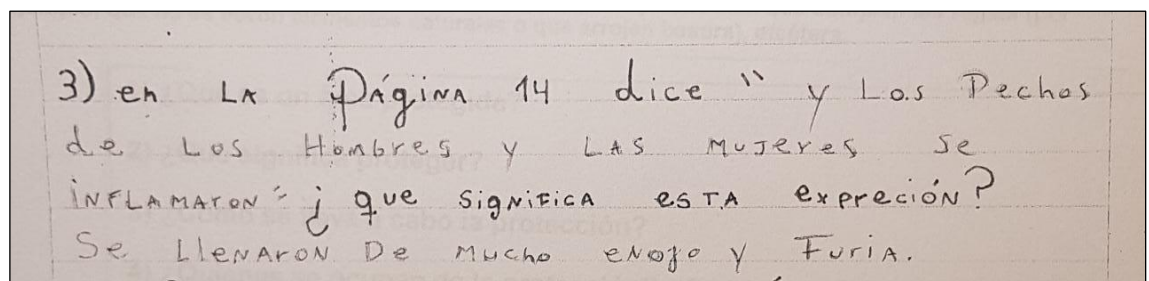 3) en LA PÁginA 14 dice " y Los Pechos
de Los Hombres y LAS MuJeres Se
inFLAMAron" ¿ que SigniFicA esTA expreción?
Se LlenAron De Mucho enojo y FuriA.